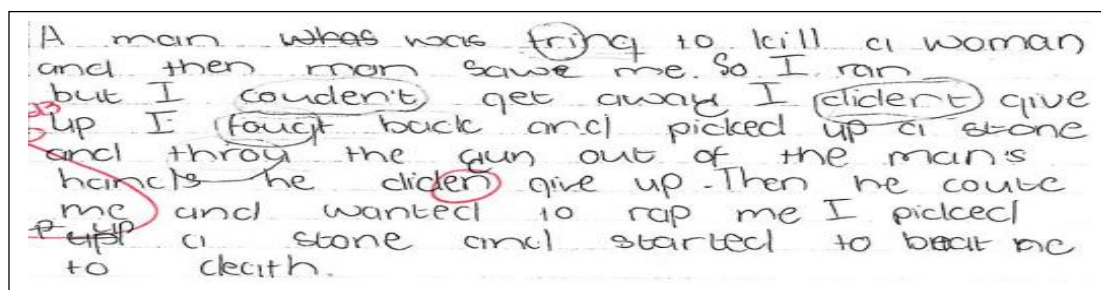 A man whas was tring to kill a woman
and then man sawe me. So I ran
but I couden't get away I dident give
up I fougt back and picked up a stone
and throy the gun out of the man's
hands he diden give up. Then he coute
me and wanted to rap me I picked
up a stone and started to beat me
to death.